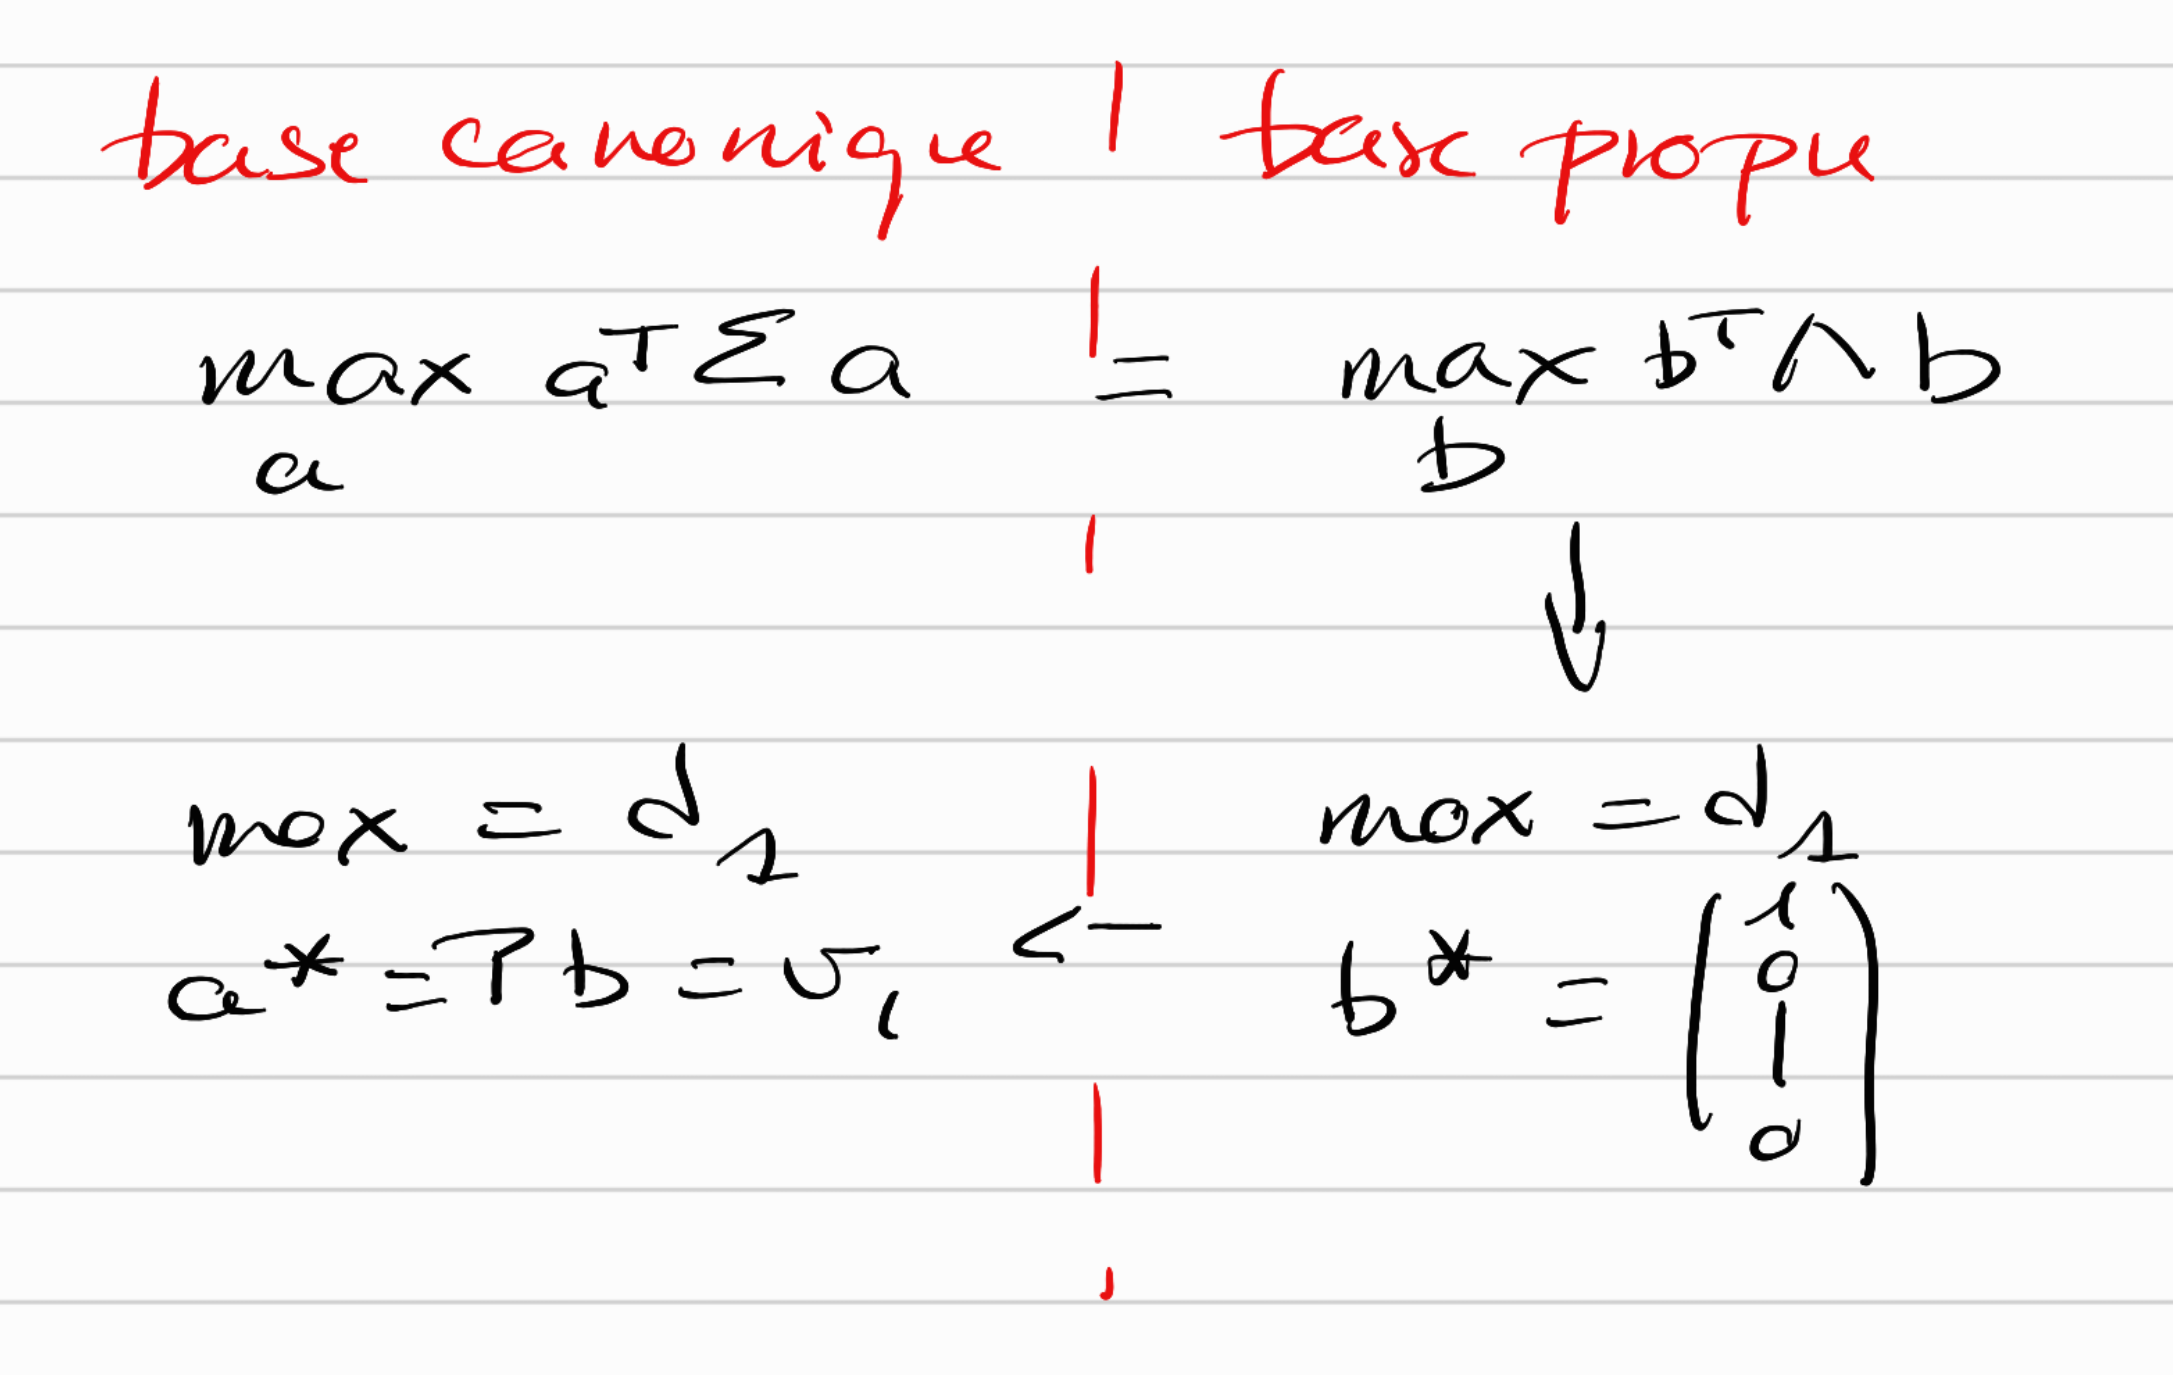 base canonique | base propre
max a^T Σ a = max b^T Λ b
a b
↓
max = d_1 | max = d_1
a* = P b = v_1 <- b* = (1 0 | 0)